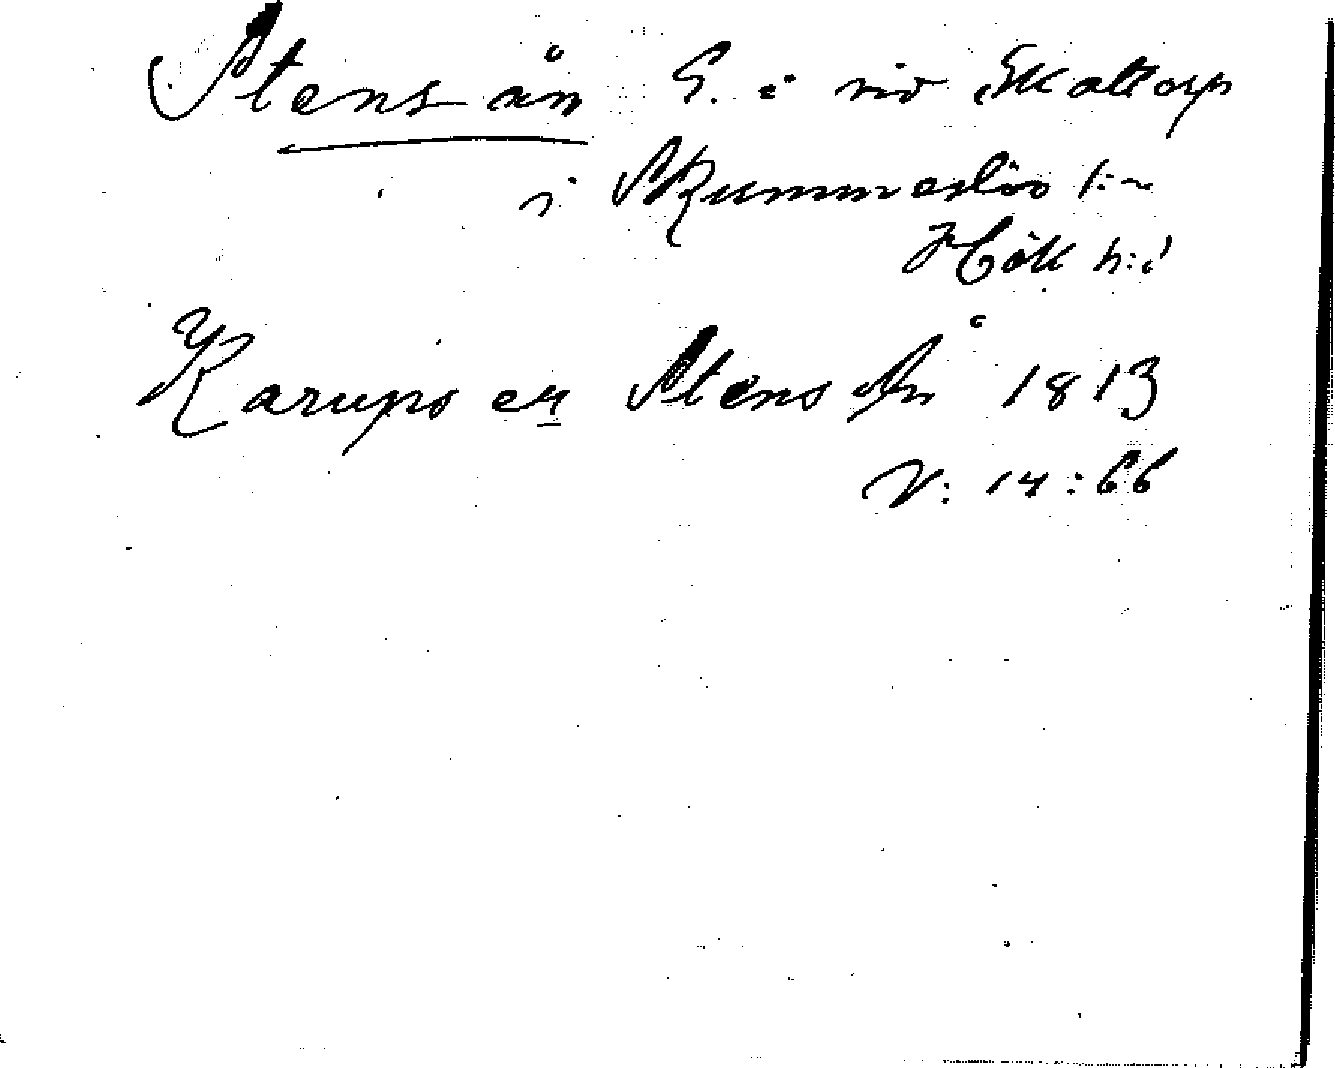 Stensån S. i vid Skottorp
i Skummeslöv s:n
Hök h:d
Karups en Stens Ån 1813
V: 14:66